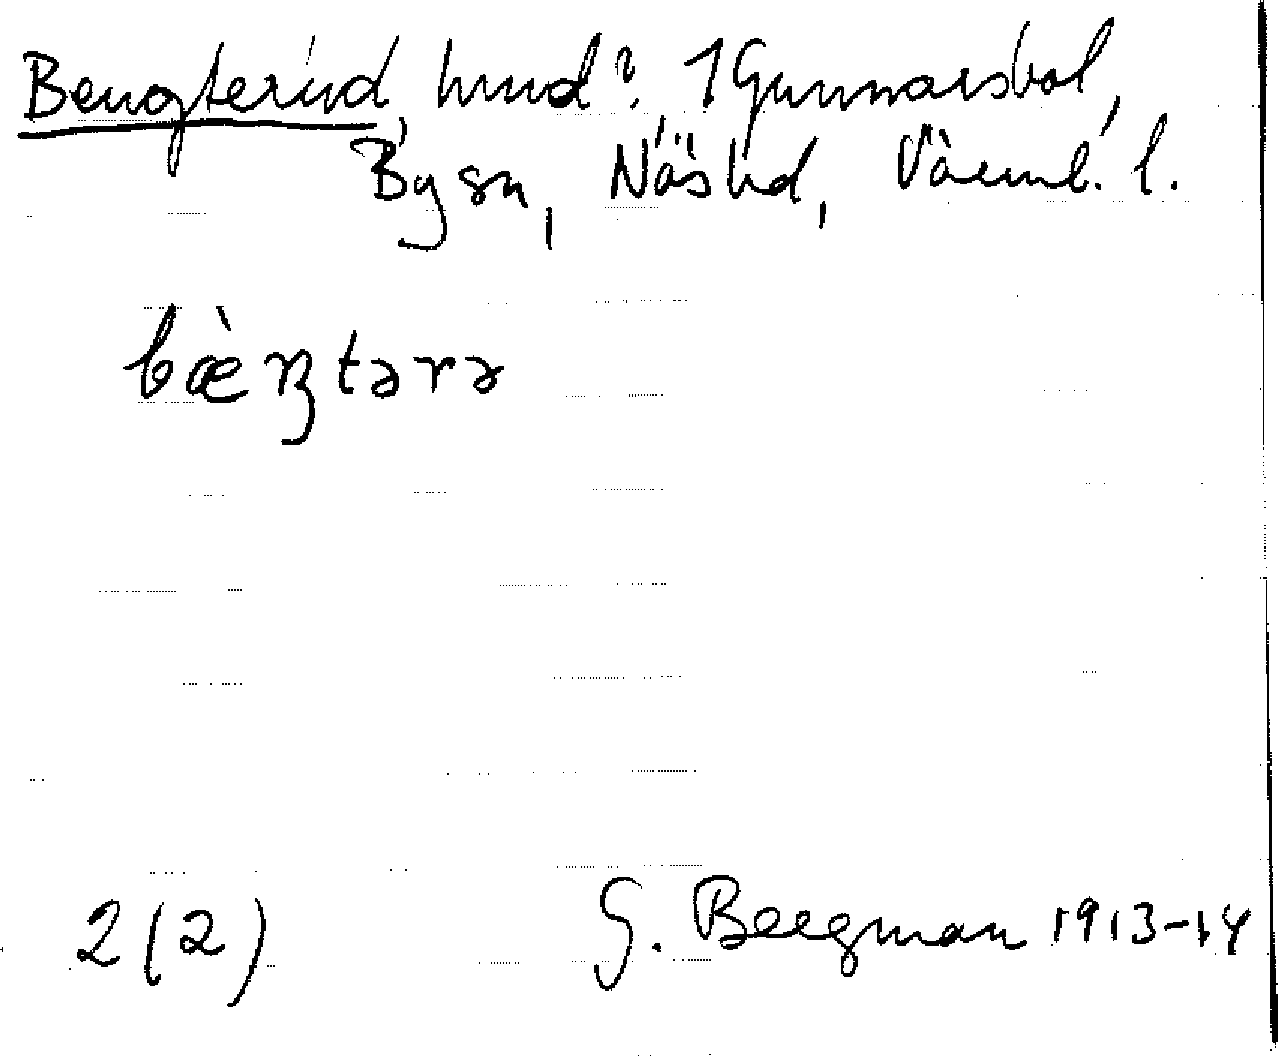 Bengterud hmd? 1 Gunnarsbol,
By sn, Näs hd, Värml. l.
bæ̀ŋtərə
2(2) G. Bergman 1913-14